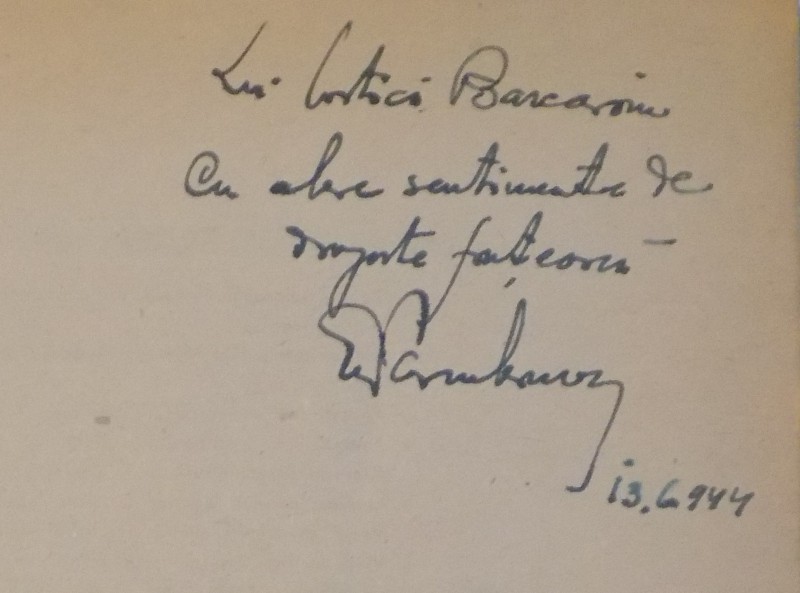 Lui Costică Barcaroiu
Cu alese sentimente de
dragoste frățească
13.6.944